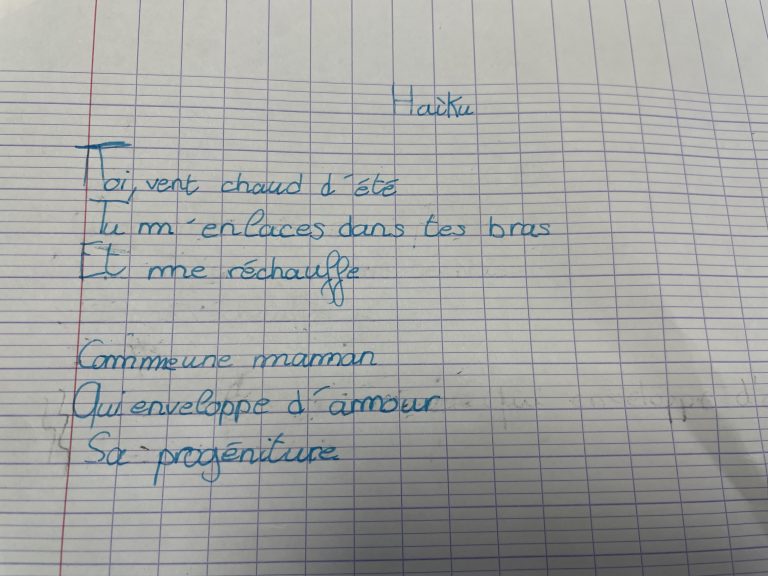 Haiku
Toi, vent chaud d'été
Tu m'enlaces dans tes bras
Et me réchauffe
Comme une maman
Qui enveloppe d'amour
Sa progéniture